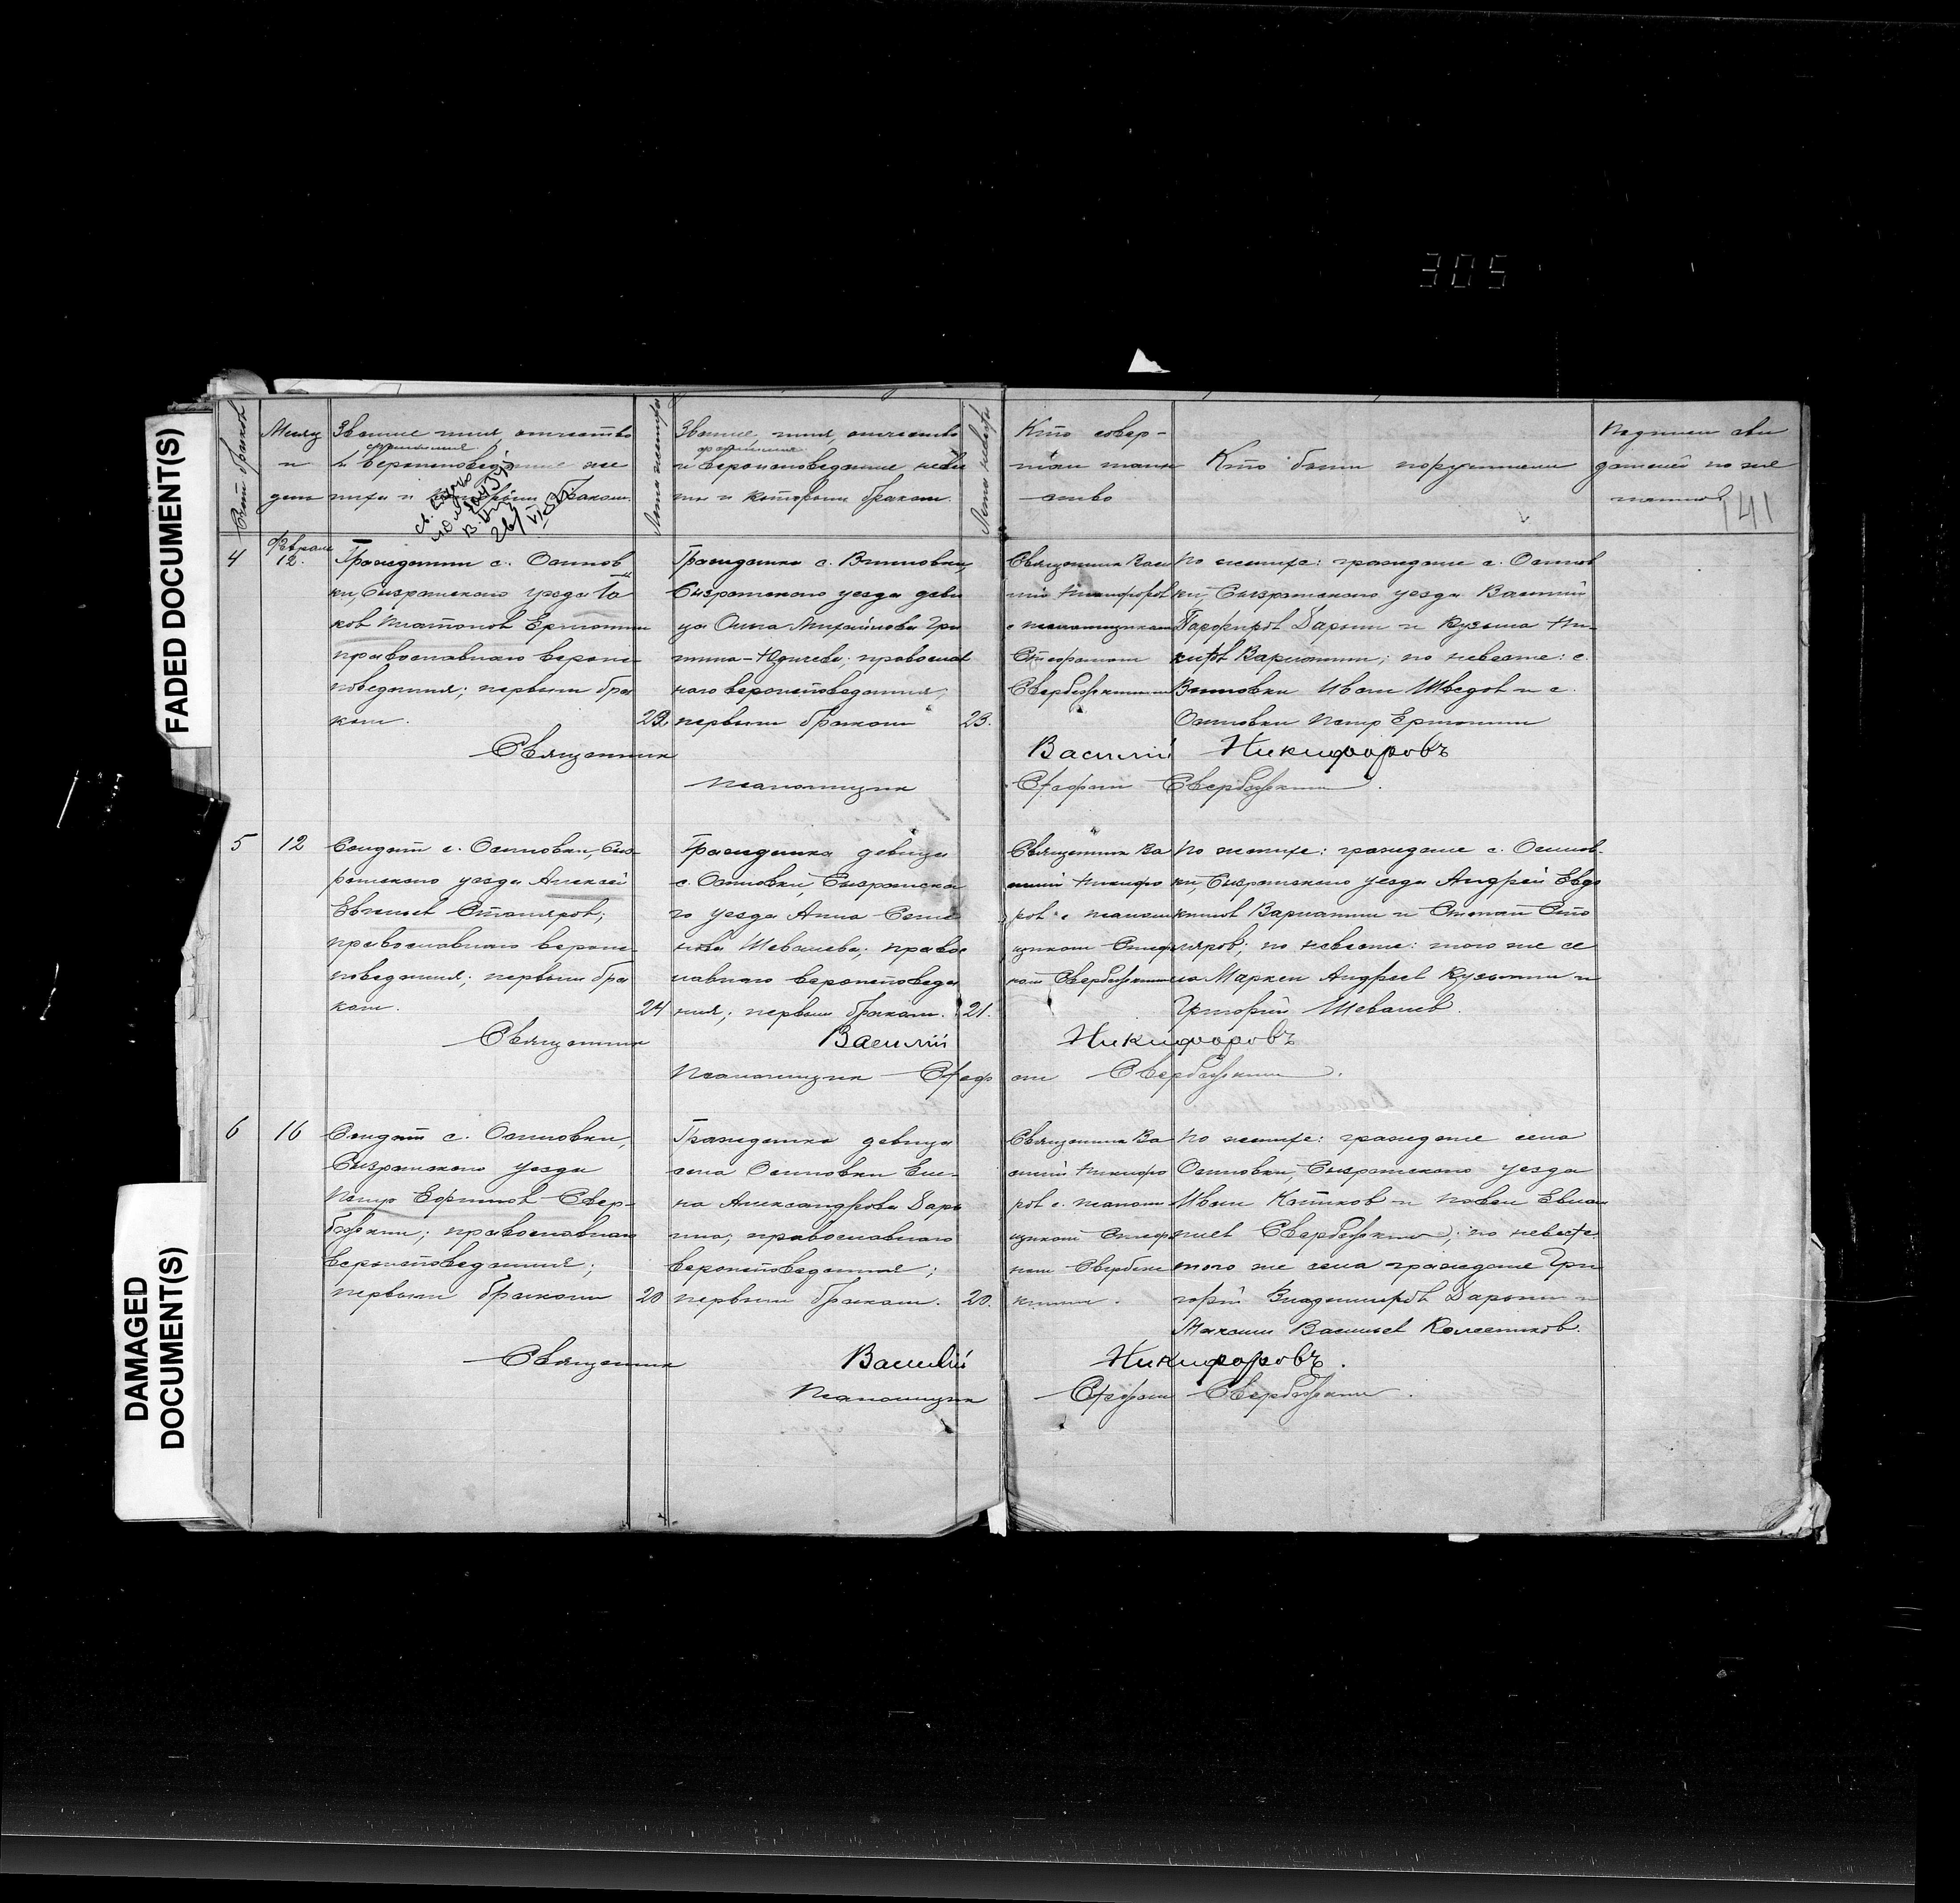 305
FADED DOCUMENT(S)
DAMAGED
DOCUMENT(S)
141
Счет браков
Месяц
и
день
Звание, имя, отчество
фамилия
и вероисповедание же
ниха и которым браком.
Лета жениха
Звание, имя, отчество
фамилия
и вероисповедание невес
ты и которым браком.
Лета невесты
Кто совер-
шал таин
ство
Кто были поручители
Подписи сви
детелей по же
4
Февраль
12.
Гражданин с. Осинов
ки, Сызранского уезда Іа
ков Платонов Ермошин
православного вероис-
поведания; первым бра
ком.
23.
Гражданка с. Вязовки,
Сызранского уезда деви
ца Ольга Михайлова
православ
ного вероисповедания,
первым браком
23.
Священник Васи
лий Никифоров
с псаломщиком
Стефаном
Свербежкиным
По женихе: граждане с. Осинов
ки, Сызранского уезда Василий
Парфиров Дарьин и Кузьма Ни-
китов Варламин; по невесте: с.
Вязовки Иван Шведов и с.
Осиновки Петр Ермошин
Священник Василий Никифоровъ
Псаломщик Стефан Свербежкин.
5
12
Солдат с. Осиновки, Сыз-
ранского уезда Алексей
Евгеньев Столяров;
православного вероис-
поведания; первым бра
ком.
24
Гражданка девица
с. Осиновки, Сызранско
го уезда Анна Семе
нова Шевалева; правос
лавного вероисповеда
ния; первым браком.
21.
Священник Ва
силий Никифо
ров с псалом
щиком Стефа
ном Свербежкиным
По женихе: граждане с. Осинов-
ки, Сызранского уезда Андрей Евдо
кимов Варламин и Степан Сто
ляров; по невесте: того же се
ла Маркел Андреев Кузьмин и
Григорий Шевалев.
Священник Василий Никифоровъ
Псаломщик Стефан Свербежкин.
6
16
Солдат с. Осиновки,
Сызранского уезда
Петр Ефимов Свер-
бежкин; православного
вероисповедания;
первым браком
20
Гражданка девица
села Осиновки Еле-
на Александрова Дарь
ина; православного
вероисповедания;
первым браком.
20.
Священник Ва
силий Никифо
ров с псалом
щиком Стефа
ном Свербеж
киным.
По женихе: граждане села
Осиновки, Сызранского уезда
Иван Котков и Павел
Свербежкин; по невесте
того же села граждане Гри
горий Владимиров Дарьин и
Максим Васильев Колесников.
Священник Василий Никифоровъ.
Псаломщик Стефан Свербежкин.